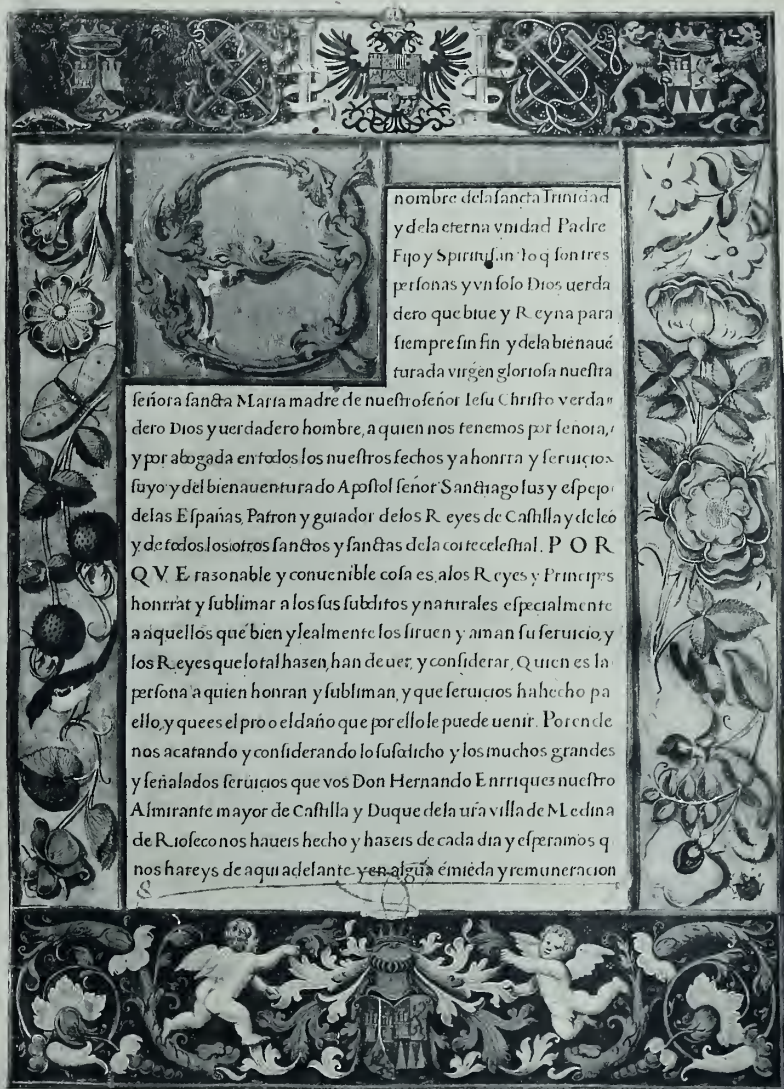 E
nombre dela sancta Trinidad
y dela eterna vnidad Padre
Fijo y Spiritusancto q̃ son tres
personas y vn solo Dios uerda
dero que biue y Reyna para
siempre sin fin y dela bienauẽ
turada virgen gloriosa nuestra
señora sancta Maria madre de nuestro señor Iesu Christo verda
dero Dios y uerdadero hombre, a quien nos tenemos por señora,
y por abogada en todos los nuestros fechos y a honrra y seruicio
suyo y del bienauenturado Apostol señor Sanctiago luz y espejo
delas Españas, Patron y guiador delos Reyes de Castilla y de leõ
y de todos los otros sanctos y sanctas de la corte celestial. POR
QVE rasonable y conuenible cosa es, alos Reyes y Principes
honrrar y sublimar a los sus subditos y naturales especialmente
a aquellos que bien y lealmente los siruen y aman su seruicio, y
los Reyes que lo tal hazen, han de uer, y considerar, Quien es la
persona a quien honran y subliman, y que seruicios ha hecho pa
ello, y que es el pro o el daño que por ello le puede uenir. Por ende
nos acatando y considerando lo susodicho y los muchos grandes
y señalados seruicios que vos Don Hernando Enrriquez nuestro
Almirante mayor de Castilla y Duque dela ur̃a villa de Medina
de Rioseco nos haueis hecho y hazeis de cada dia y esperamos q
nos hareys de aqui adelante, y en algũa émiẽda y remuneracion